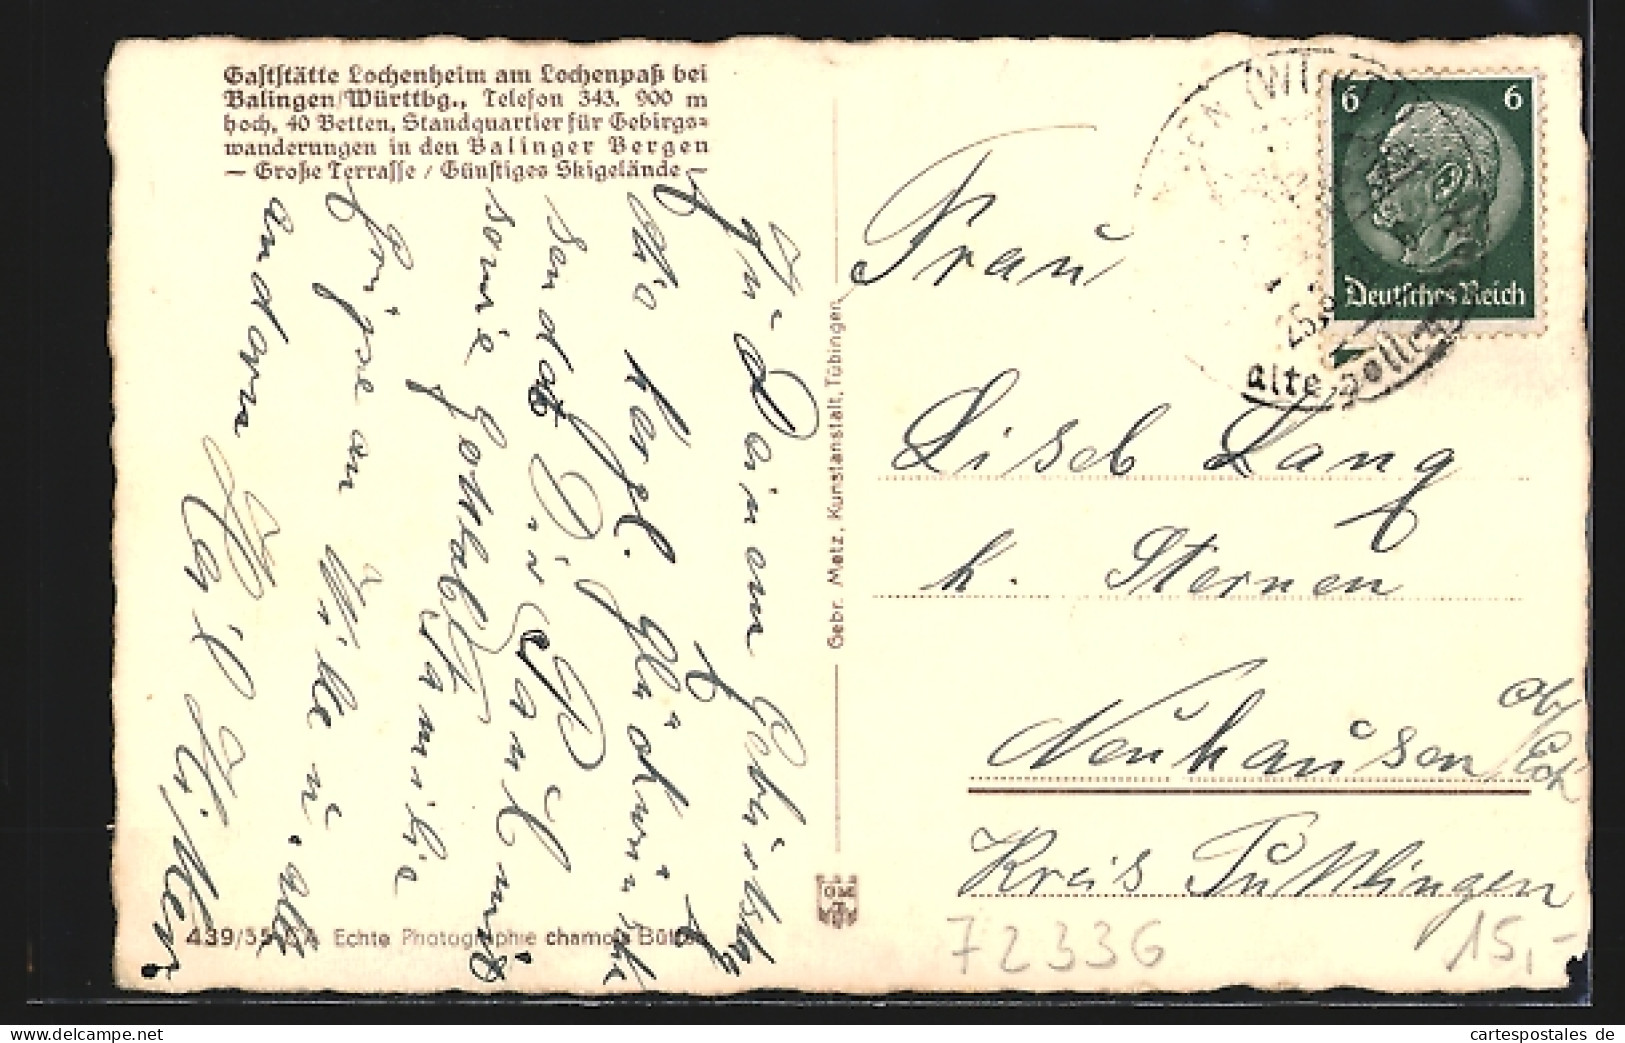 Gaststätte Lochenheim am Lochenpaß bei
Balingen/Württbg., Telefon 343. 900 m
hoch, 40 Betten, Standquartier für Gebirgs-
wanderungen in den Balinger Bergen
— Große Terrasse / Günstiges Skigelände —
Zu Deinem Geburtstag
die herzl. Glückwünsche
sendet Dir Paul mit
sowie Gottlob Familie
Grüsse an Willi u. alle
andern Heil Hitler.
439/35 Echte Photographie chamois Bütten
Gebr. Metz, Kunstanstalt, Tübingen
6 6
Deutsches Reich
25.
alte
Frau
Liseb Lang
z. Sternen
Neuhausen ob/
Eck
Kreis Tuttlingen
72336
15,-
cartespostales de